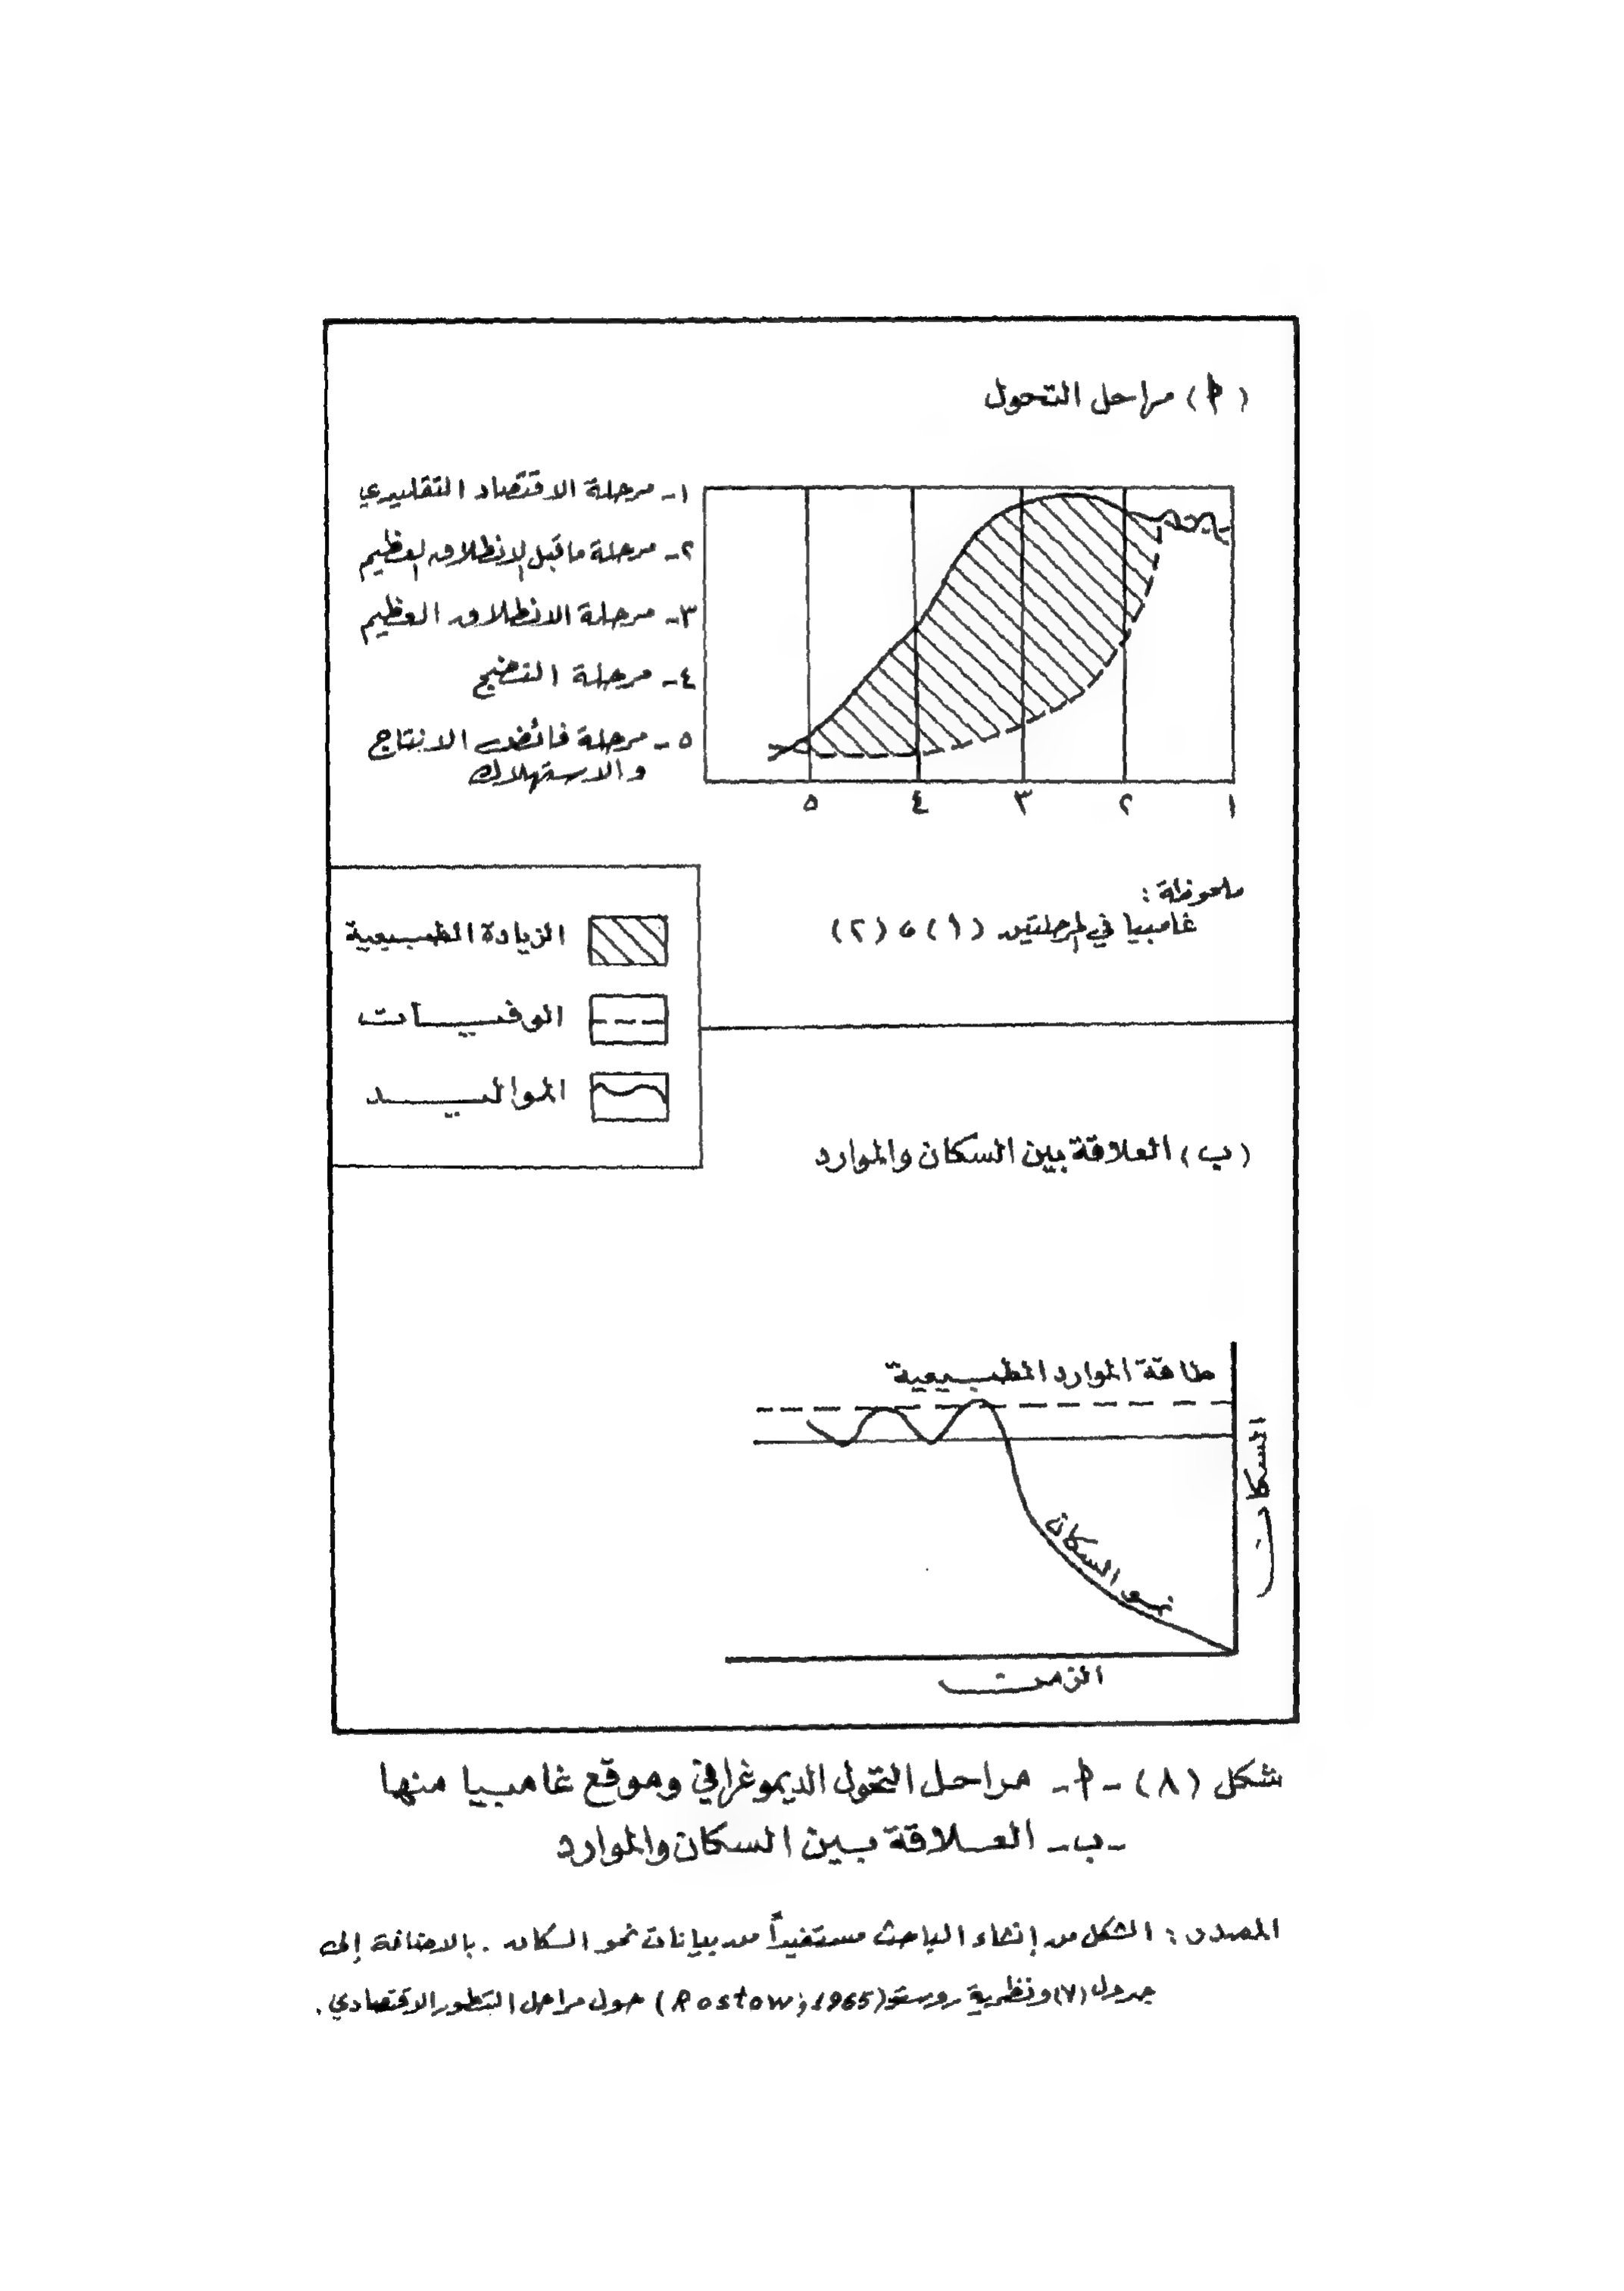 (أ) مراحل التحول
١- مرحلة الاقتصاد التقليدي
٢- مرحلة ما قبل الانطلاق العظيم
٣- مرحلة الانطلاق العظيم
٤- مرحلة النضج
٥- مرحلة فائض الانتاج
والاستهلاك
١ ٢ ٣ ٤ ٥
ملحوظة :
غامبيا في المرحلتين (١) ، (٢)
الزيادة الطبيعية
الوفيات
المواليد
(ب) العلاقة بين السكان والموارد
طاقة الموارد الطبيعية
السكان
نمو السكان
الزمن
شكل (٨) -أ- مراحل التحول الديموغرافي وموقع غامبيا منها
-ب- العلاقة بين السكان والموارد
المصدر : الشكل من إنشاء الباحث مستفيداً من بيانات نمو السكان . بالاضافة إلى
جدول (٧) ونظرية روستو (Rostow ; 1965) حول مراحل التطور الاقتصادي .